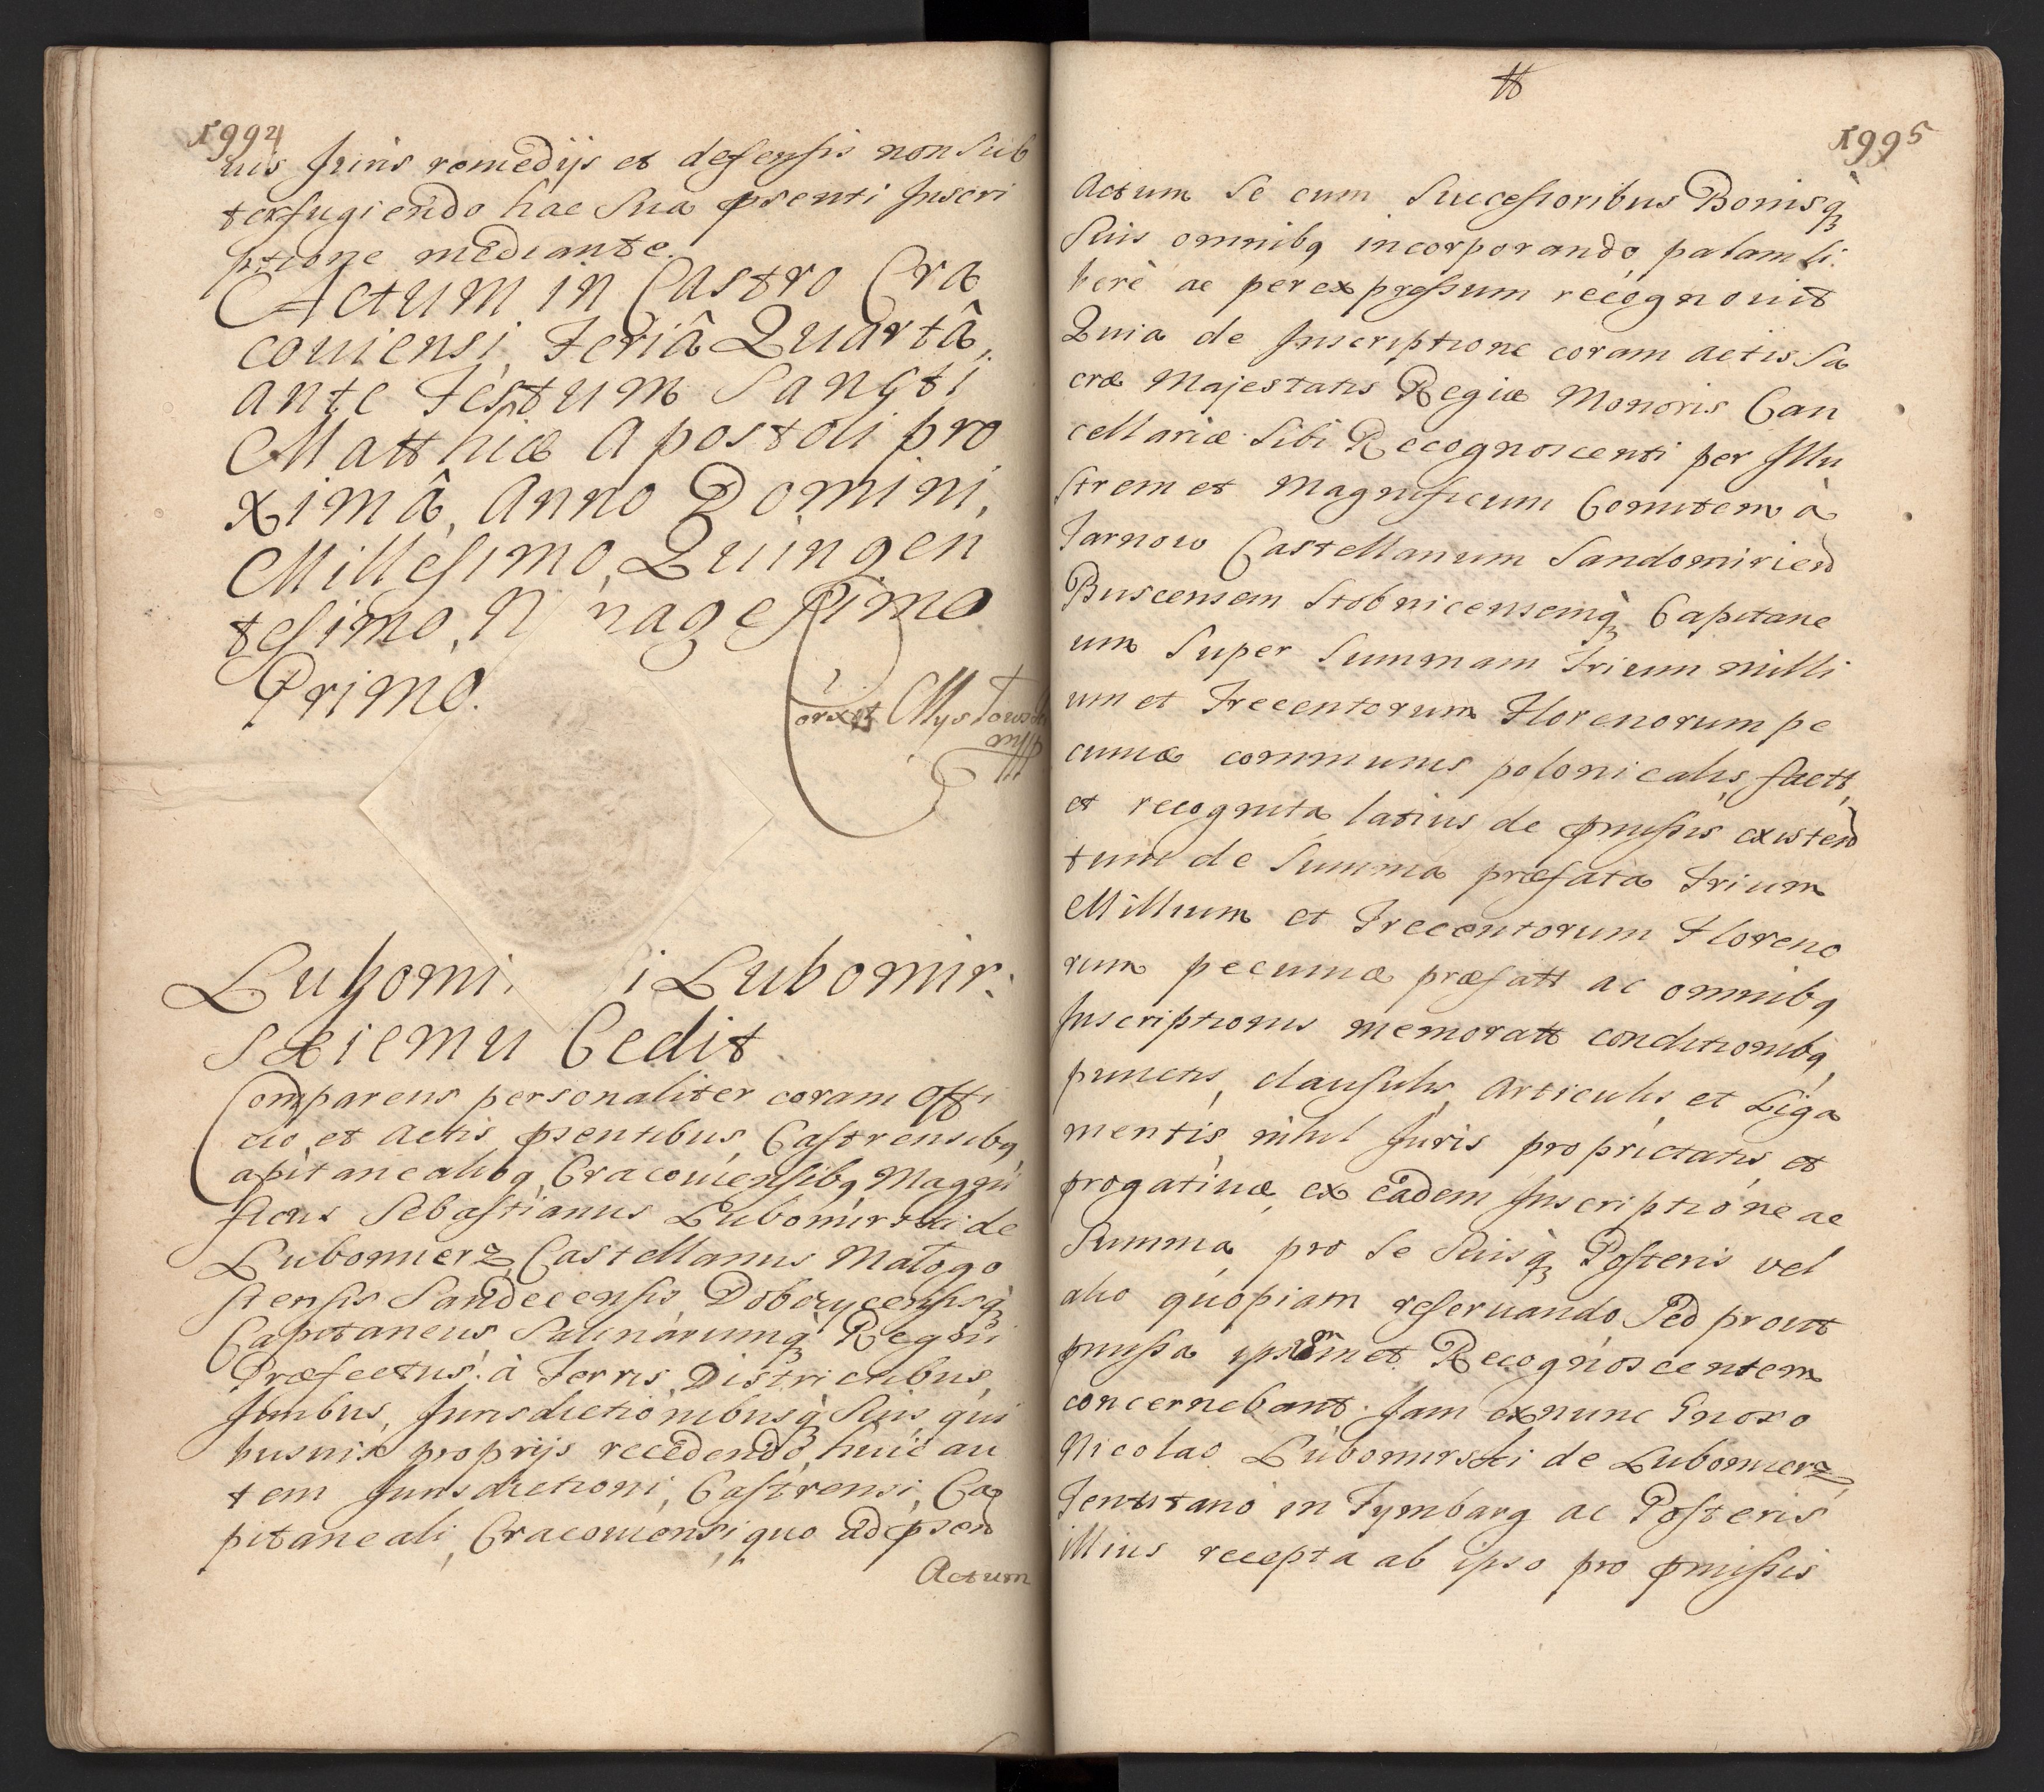 1994
uis Juris remedijs et defensis non Sub
terfugiendo hac Sua pśenti Inscri
ptione mediante.
Actum in Castro Cra
couiensi, Feriâ Quartâ,
ante Festum Sancti
Matthiæ Apostoli pro
ximâ, Anno Domini,
Millesimo, Quingen
tesimo, N nagesimo
Primo.
Corexit Mystows
mpp
Lubomi i Lubomir:
skiemu Cedit
Comparens personaliter coram Offi
cio, et Actis pśentibus, Castrensibq
apitanealibq Cracouiensibq Magni
ficus Sebastianus Lubomirski de
Lubomierz, Castellanus Małogo
stensis Sandecensis, Dobczycensisq
Capitaneus, Salinarumq Regni
Præfectus, à Terris, Districtibus,
Juribus, Jurisdictionibusq Suis, qui
busuis proprijs recedendo, huic au
tem Jurisdictioni, Castrensi, Ca
pitaneali, Cracouiensi, quo ad pśen
Actum
tt
1995
Actum Se cum Successoribus Bonisq
Suis omnibq incorporando palam li:
berè ac per expressum recognouit
Quia de Inscriptione coram actis Sa
cræ Majestatis Regiæ Monoris Can
cellariæ Sibi Recognoscenti per Illu
strem et Magnificum Comitem à
Tarnow Castellanum Sandomirien
Buscensem Stobnicensemq Capitane
um Super Summam Trium milli
um et Trecentorum Florenorum pe
cuniæ communis polonicalis, factt,
et recognita latius de pmissis existen
tum de Summa præfata Trium
Millium et Trecentorum Floreno
rum pecuniæ præfatt ac omnibq
Inscriptionis memoratt conditionibq,
punctis, clausulis, Articulis, et Liga
mentis, nihil Juris proprietatis et
progatiuæ, ex eadem Inscriptione ac
Summa, pro Se Suisq Posteris vel
alio quopiam reseruando Sed prout
pmissa ipsummet Recognoscentem
concernebant. Jam ex nunc Gnoso
Nicolao Lubomirski de Lubomierz,
Tentutano in Tymbarg ac Posteris
illius recepta ab ipso pro pmissis